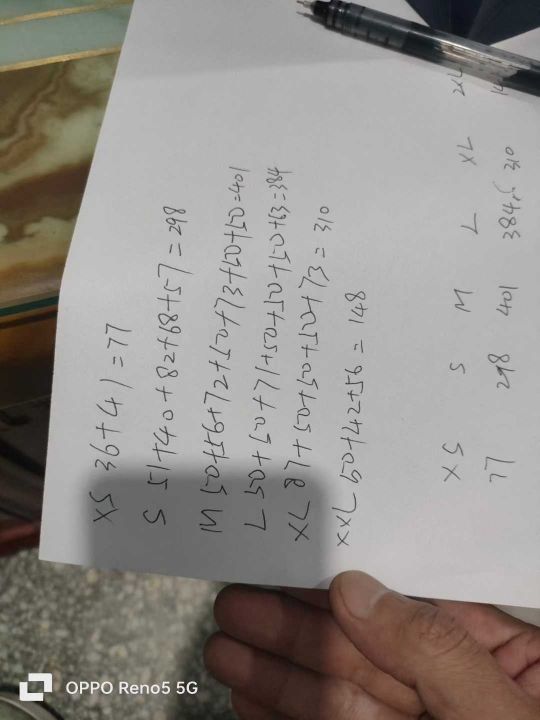 XS 36+41=77
S 51+40+82+68+57=298
M 50+56+72+50+73+50+50=401
L 50+50+71+50+50+50+63=384
XL 87+50+50+50+73=310
XXL 50+42+56=148
XS S M L XL 2XL
77 298 401 384 310
OPPO Reno5 5G